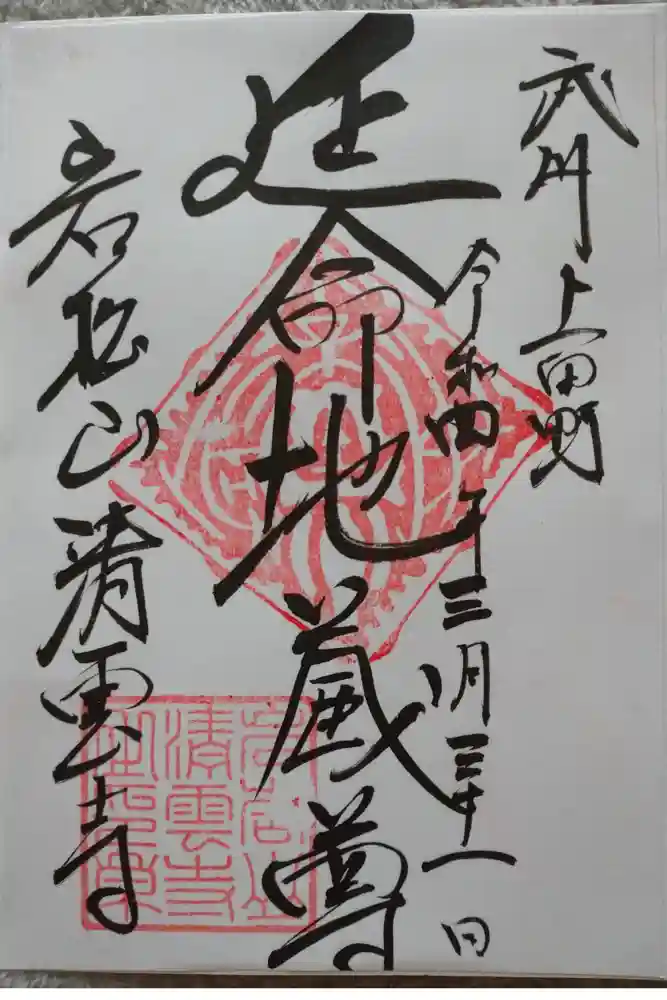 武州 上田野
令和四年三月三十一日
延命地蔵尊
岩松山 清雲寺
清雲寺